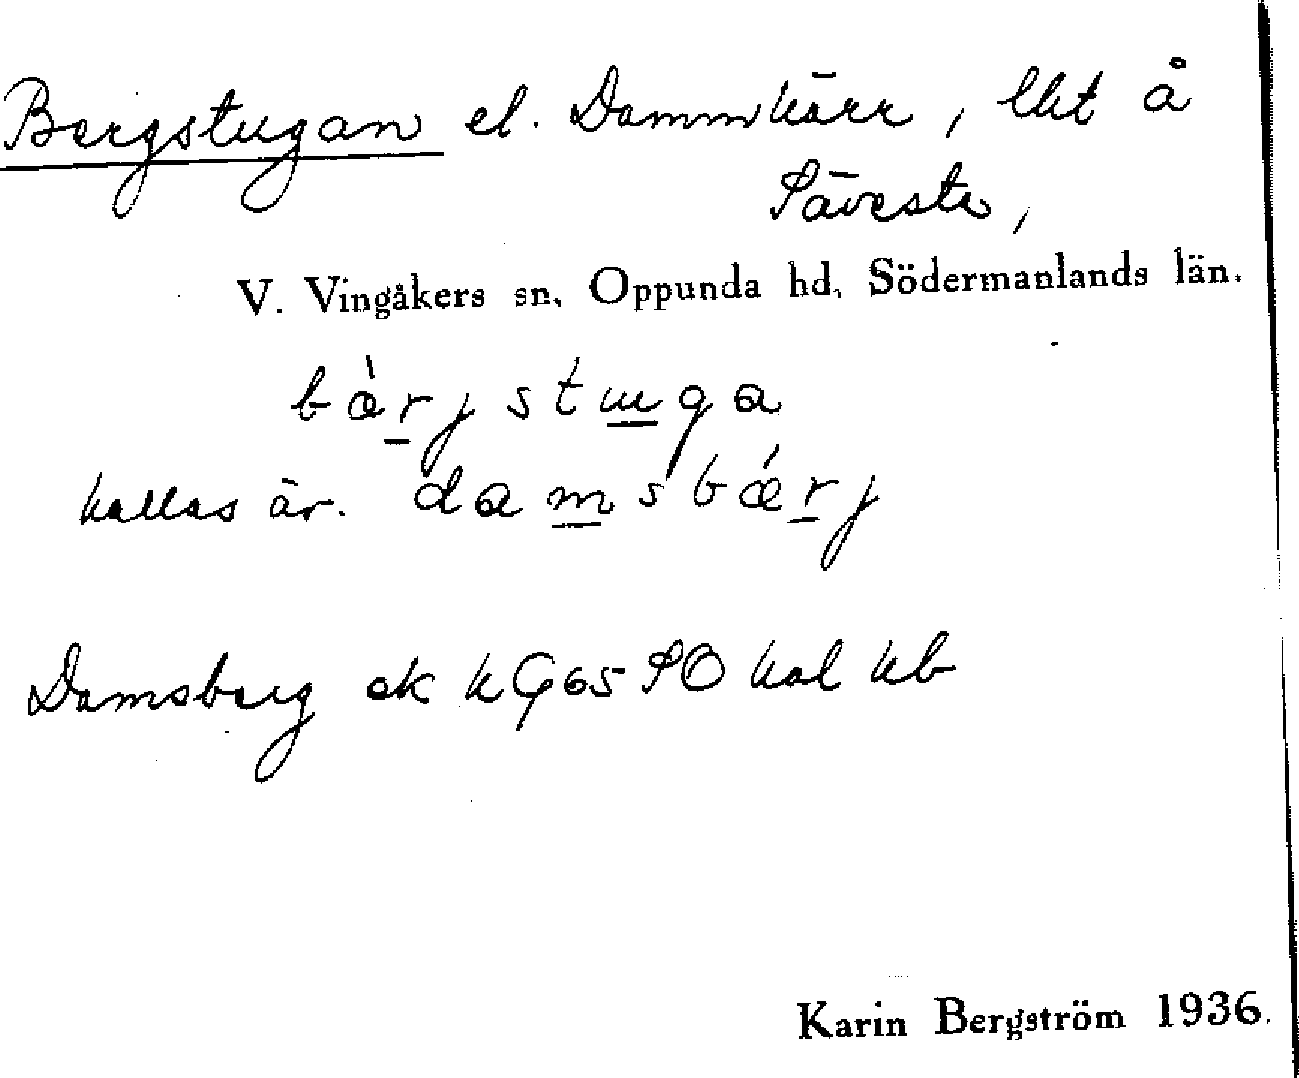 Bergstugan el. Dammkärr, lht å
Sävesta,
V. Vingåkers sn, Oppunda hd, Södermanlands län.
bǽrjstuga
kallas äv. damsbǽrj
Damsberg ek kG65 SO kal kb
Karin Bergström 1936.